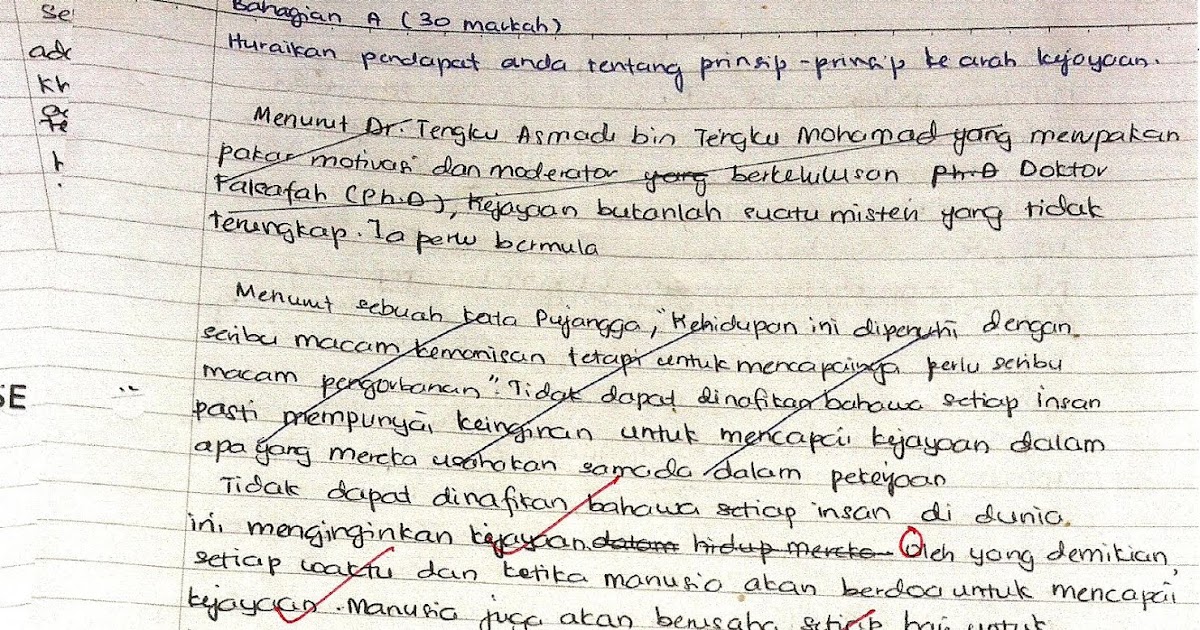 Bahagian A (30 markah)
Huraikan pendapat anda tentang prinsip-prinsip ke arah kejayaan.
Menurut Dr. Tengku Asmadi bin Tengku Mohamad yang merupakan
pakar motivasi dan moderator yang berkelulusan Ph.D Doktor
Falsafah (Ph.D), kejayaan bukanlah suatu misteri yang tidak
terungkap. Ia perlu bermula
Menurut sebuah kata Pujangga, "Kehidupan ini dipenuhi dengan
seribu macam kemanisan tetapi untuk mencapainya perlu seribu
macam pengorbanan". Tidak dapat dinafikan bahawa setiap insan
pasti mempunyai keinginan untuk mencapai kejayaan dalam
apa yang mereka usahakan samada dalam pekerjaan
Tidak dapat dinafikan bahawa setiap insan di dunia
ini menginginkan kejayaan dalam hidup mereka oleh yang demikian,
setiap waktu dan ketika manusia akan berdoa untuk mencapai
kejayaan. Manusia juga akan berusaha setiap hari untuk
Se
adc
kh
r
SE